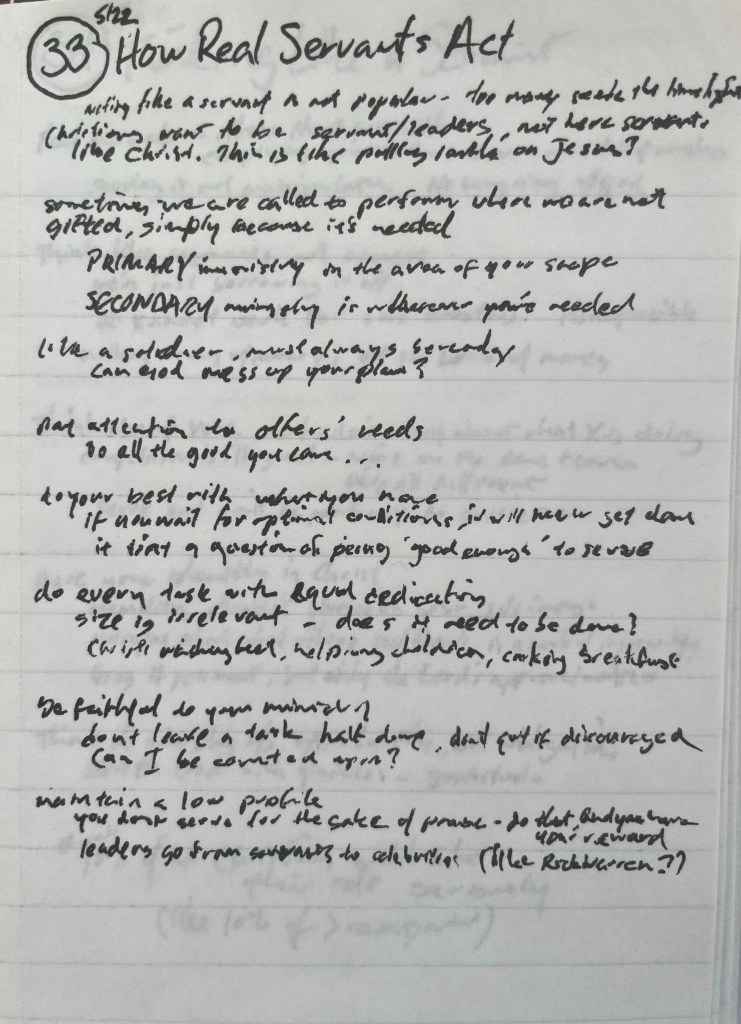 5/22
33 How Real Servants Act
acting like a servant is not popular - too many seek the limelight
Christians want to be servant/leaders, not here servants
like Christ. This is like pulling rank on Jesus?
sometimes we are called to perform where we are not
gifted, simply because it's needed
PRIMARY ministry in the area of your shape
SECONDARY ministry is wherever you're needed
like a soldier, must always be ready
can God mess up your plans?
pay attention to others' needs
Do all the good you can...
do your best with what you have
if you wait for optimal conditions, it will never get done
it isn't a question of being 'good enough' to serve
do every task with equal dedication
size is irrelevant - does it need to be done?
Christ: washing feet, helping children, cooking breakfast
be faithful to your ministry
don't leave a task half done, don't quit if discouraged
Can I be counted upon?
maintain a low profile
you don't serve for the sake of praise - do that, and you have
your reward
leaders go from servants to celebrities (like Rick Warren??)